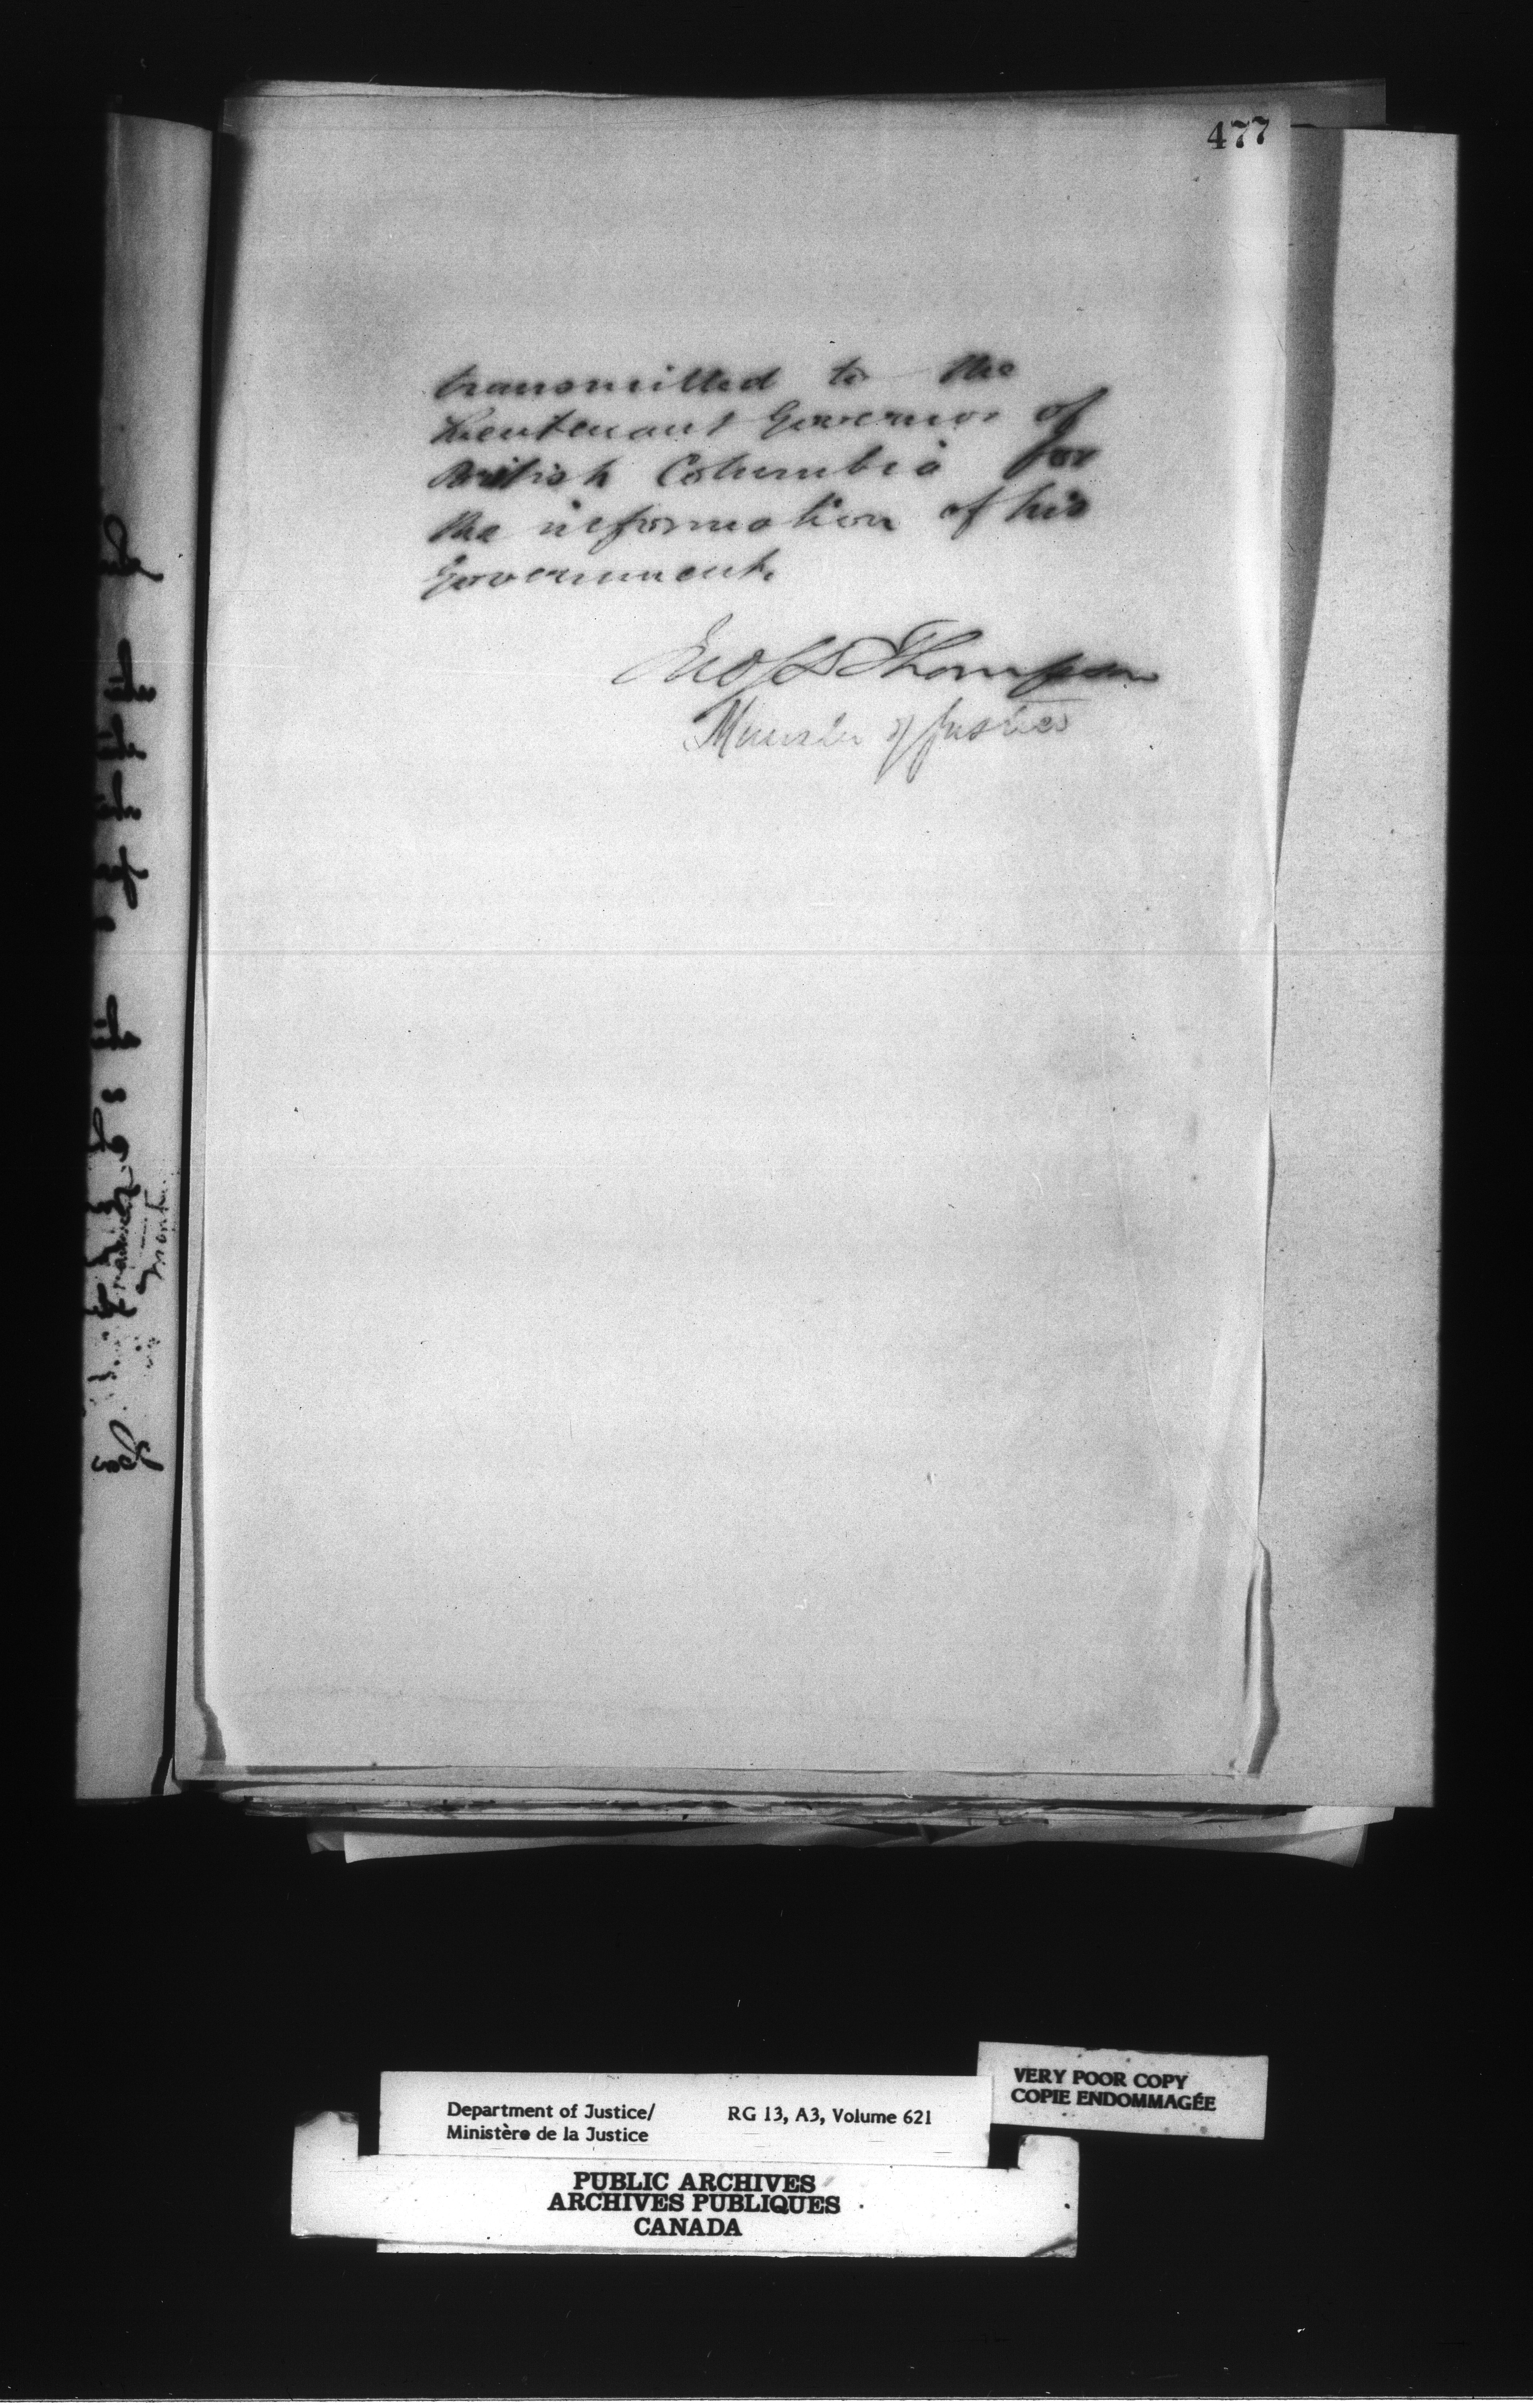 477
transmitted to the
Lieutenant Governor of
British Columbia for
the information of his
Government.
Jno S D Thompson
Minister of Justice
VERY POOR COPY
COPIE ENDOMMAGÉE
Department of Justice/ RG 13, A3, Volume 621
Ministère de la Justice
PUBLIC ARCHIVES
ARCHIVES PUBLIQUES
CANADA